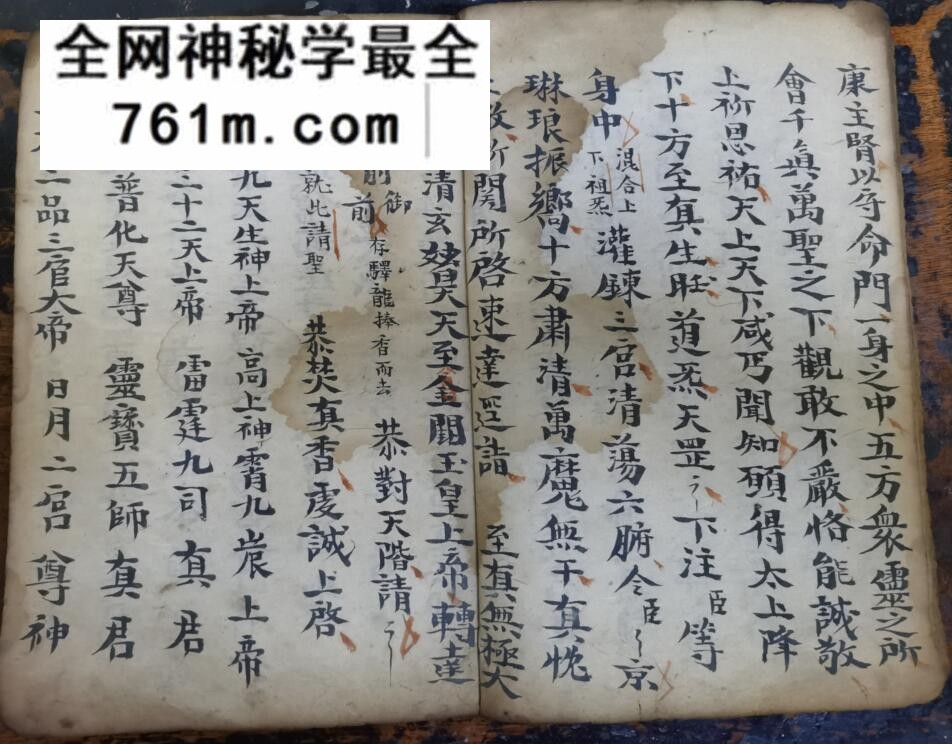 全网神秘学最全
761m.com
康主腎以守命門一身之中五方衆靈之所
會千眞萬聖之下觀敢不嚴恪能誠敬
上祈恩祐天上天下咸丐聞知願得太上降
下十方至真生旺道炁天罡下注臣等
身中混合上下祖炁灌鍊三宮清蕩六腑令臣京
琳琅振嚮十方肅清萬魔無干真悅
啟所関所啓速達逕詣 至真無極大
清玄昊天至金闕玉皇上帝轉達
御前 存驛龍捧香而去 恭對天階請
就此請聖 恭焚真香虔誠上啓
九天生神上帝 高上神霄九宸上帝
三十二天上帝 雷霆九司真君
普化天尊 靈寶五師真君
三品三官大帝 日月二宮尊神